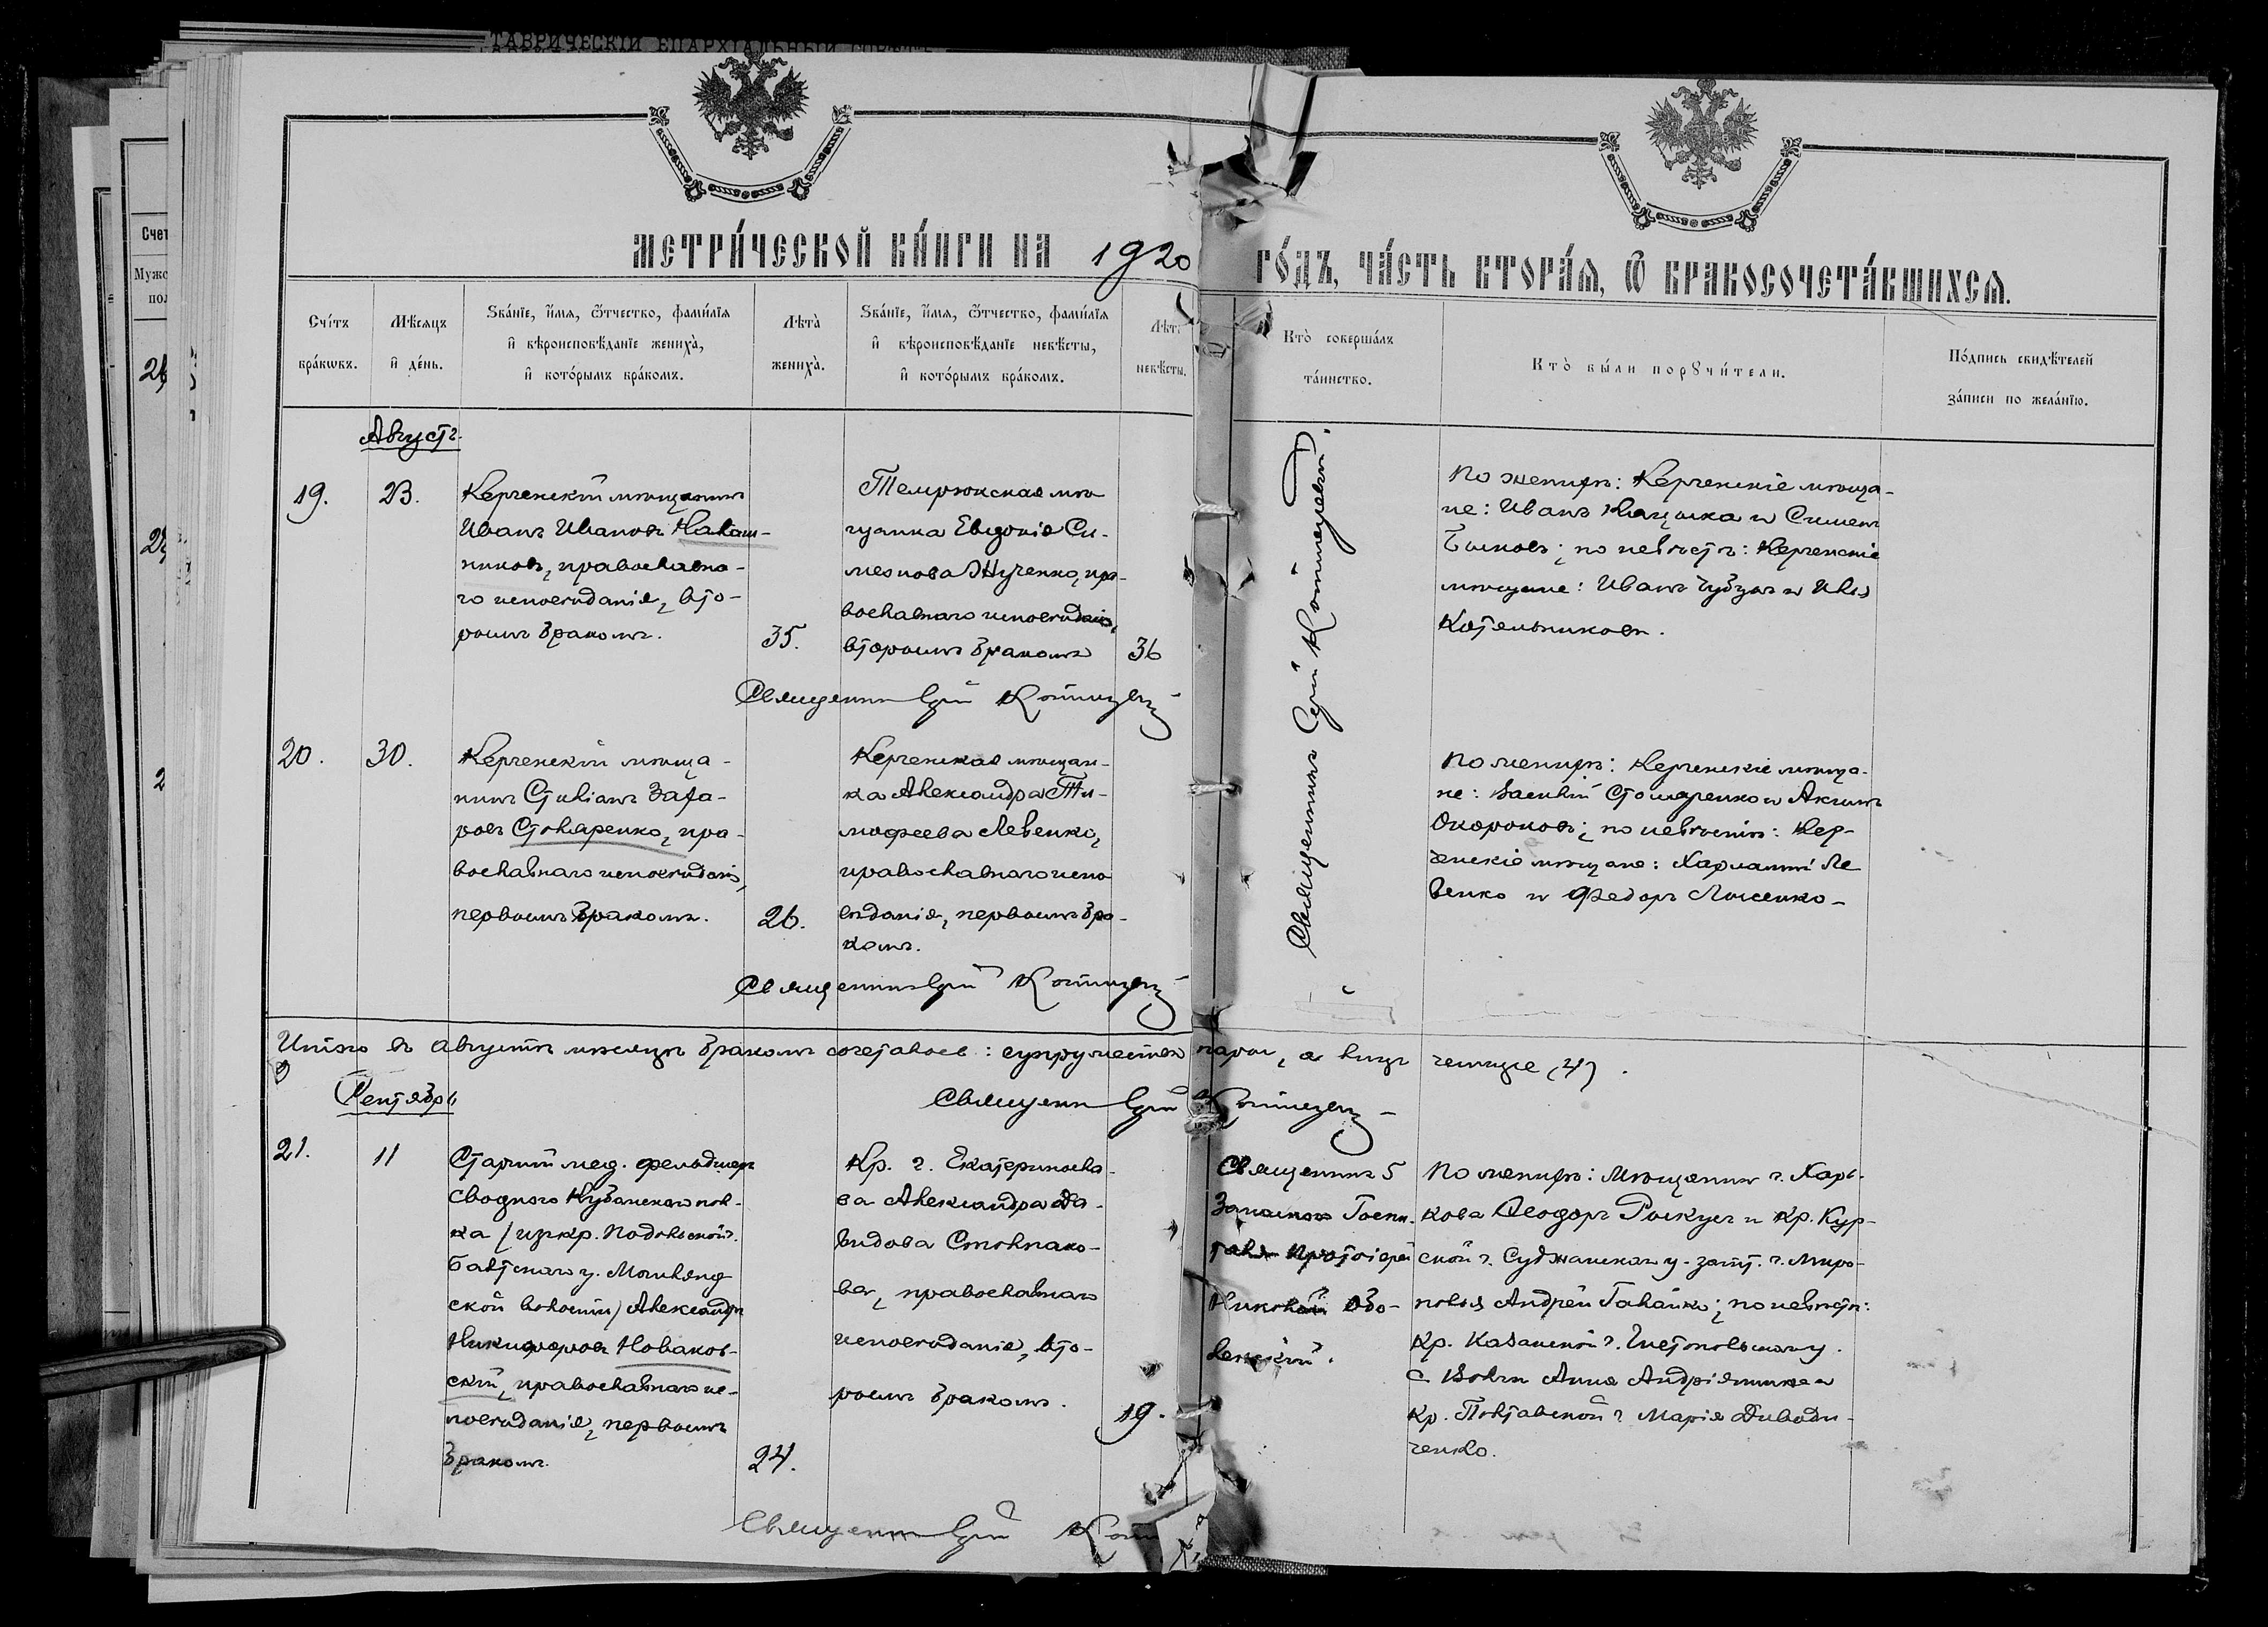 ТАВРИЧЕСКІЙ ЕПАРХІАЛЬНЫЙ
Счет
Мужс
пол
МЕТРИ́ЧЕСКОЙ КНИ́ГИ НА 1920
ГО́ДЪ, ЧА́СТЬ ВТОРА́Ѧ, Ѿ БРАКОСОЧЕТА́ВШИХСѦ.
Счётъ
бра́кѡвъ.
Мѣ́сяцъ
и҆ де́нь.
Ѕва́нїе, и҆́мѧ, ѻ҆́тчество, фами́лїѧ
и҆ вѣроисповѣ́данїе жениха̀,
и҆ кото́рымъ бра́комъ.
Лѣ́та
жениха̀.
Ѕва́нїе, и҆́мѧ, ѻ҆́тчество, фами́лїѧ
и҆ вѣроисповѣ́данїе невѣ́сты,
и҆ кото́рымъ бра́комъ.
Лѣт
невѣ́сты.
Кто̀ соверша́лъ
та́инство.
Кто̀ бы́ли порꙋчи́тели.
По́дпись свидѣ́телей
за́писи по жела́нїю.
Августъ.
19.
23.
Керченскій мѣщанинъ
Иванъ Ивановъ Калаш-
никовъ, православна-
го исповѣданія, вто-
рымъ бракомъ.
35.
Темрюкская мѣ
щанка Евдокія Си-
меонова Жученко, пра-
вославнаго исповѣданія,
вторымъ бракомъ
36
Священникъ Сергій Котинецкій.
По женихѣ: Керченскіе мѣща-
не: Иванъ и Симеонъ
Быковъ; по невѣстѣ: Керченскіе
мѣщане: Иванъ и
Котельниковъ.
Священникъ
20.
30.
Керченскій мѣща-
нинъ Стиліанъ Заха-
ровъ Столяренко, пра-
вославнаго исповѣданія,
первымъ бракомъ.
26.
Керченская мѣщан-
ка Александра Ти-
мофеева Левенко,
православнаго испо
вѣданія, первымъ бра-
комъ.
По женихѣ: Керченскіе мѣща-
не: Василій Столяренко и Акимъ
Окороковъ; по невѣстѣ: Кер-
ченскіе мѣщане: Харлампій Ле
венко и Федоръ Лысенко
Священникъ
Итого въ августѣ мѣсяцѣ бракомъ сочеталось: супружества пары, а лицъ четыре (4).
Священникъ
Сентябрь
21.
11
Старшій мед. фельдшеръ
Сводного Кубанскаго пол-
ка (изъ кр. Подольской г.
Балтскаго у. Мошняг
ской волости) Александръ
Никифоровъ Новаков-
скій, православнаго ис-
повѣданія, первымъ
бракомъ.
24.
Кр. г. Екатериносла-
ва Александра Да-
видова Столпако-
ва, православнаго
исповѣданія, вто-
рымъ бракомъ.
19.
Священникъ 5
Запаснаго Госпи-
таля Протоіерей
Николай
По женихѣ: Мѣщанинъ г. Харь-
кова Ѳеодоръ и Кр. Кур-
ской г. Суджанскаго у. зашт. г. Миро-
полья Андрей Галайко; по невѣстѣ:
Кр. Казанской г. Чистопольскаго у.
с. Анна и
Кр. Полтавской г. Марія Диводи-
ченко.
Священникъ